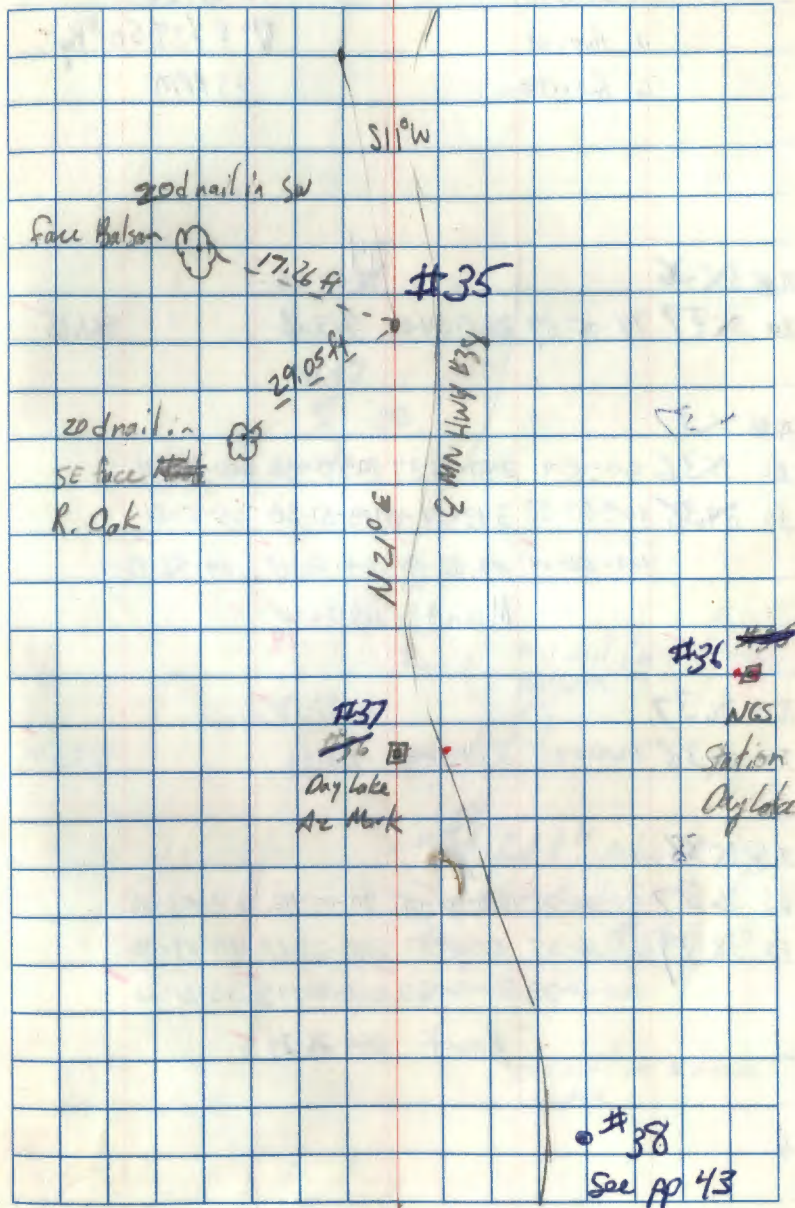 S11°W
20d nail in SW
face Balsam
17.26 ft
#35
29.05 ft
20d nail in
SE face
R. Oak
℄ MN HWY #38
N21°E
#36
NGS
Station
Day Lake
#37
#36
Day Lake
Az Mark
#38
See pp 43